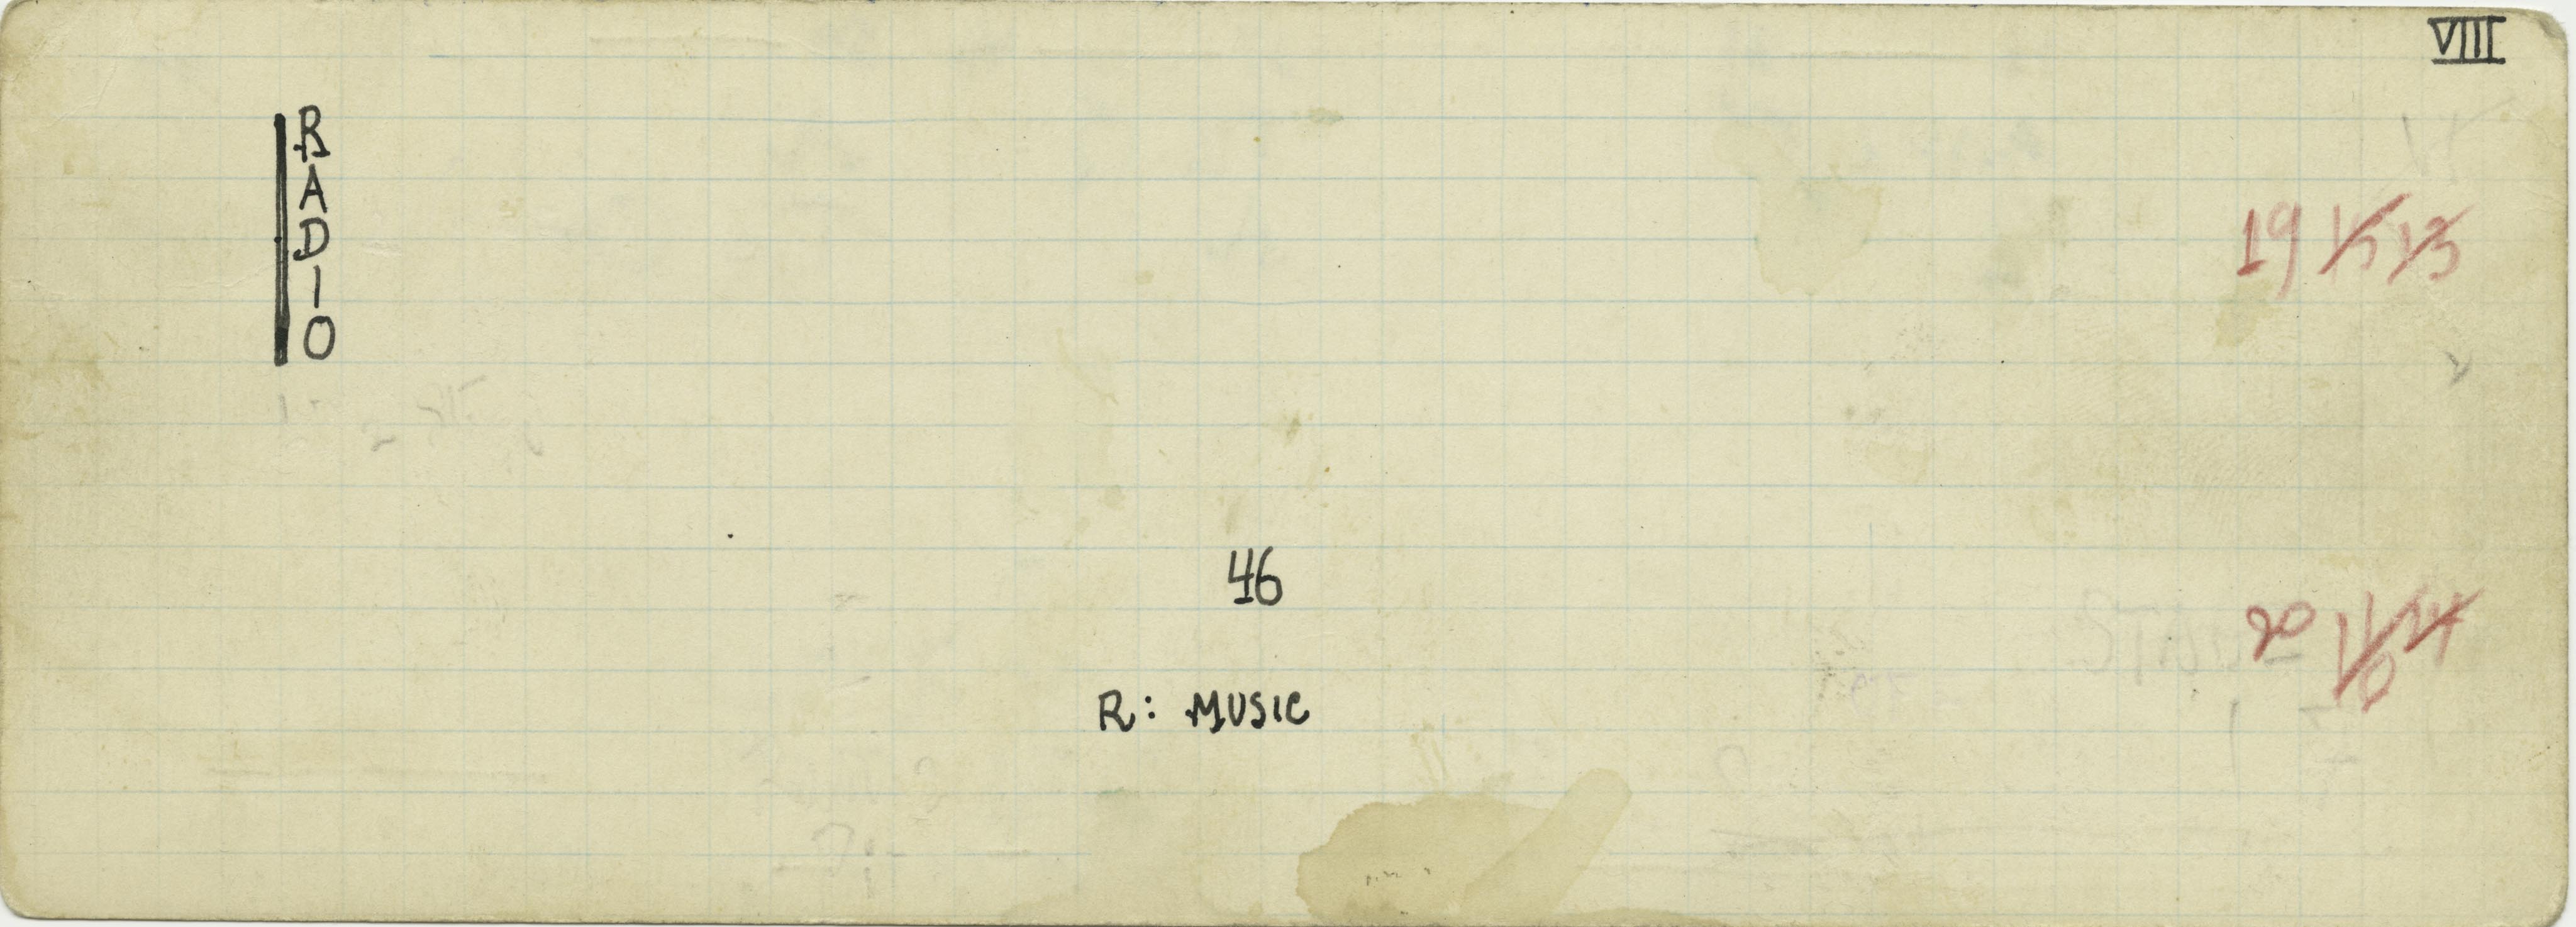 VIII
RADIO
19 15 13
46
20
R: MUSIC